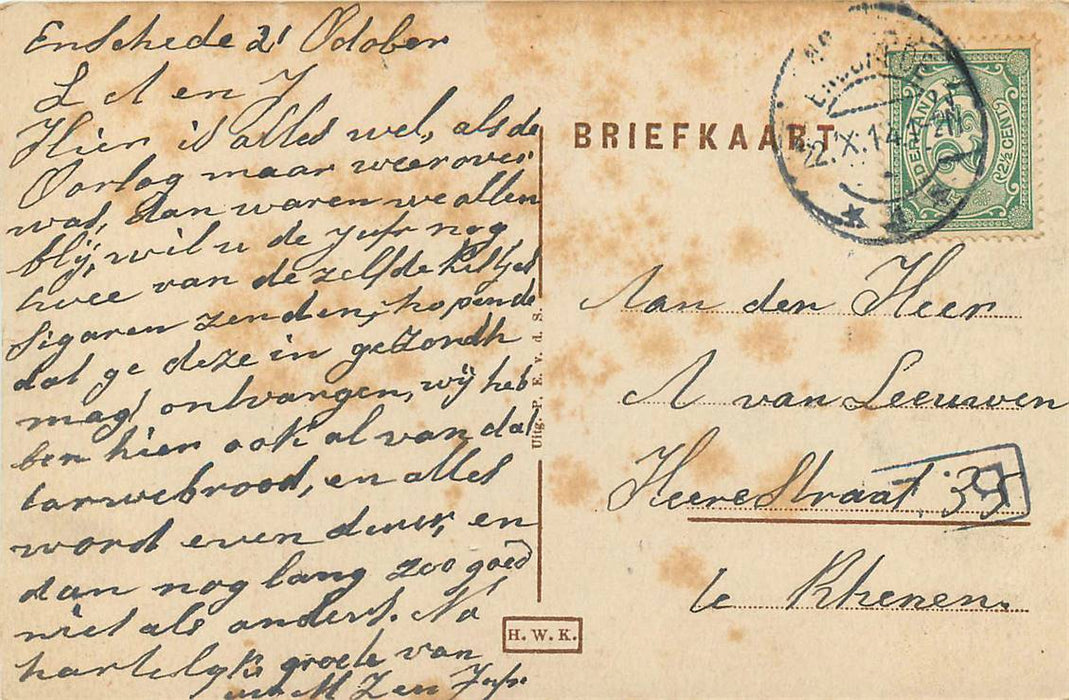 Enschede 21 October
L A en J
Hier is alles wel, als de
Oorlog maar weer over
was, dan waren we allen
blij, wil u de Jufr nog
twee van de zelfde kistjes
sigaren zenden, hopende
dat ge deze in gezondh
magt ontvangen, wij heb
ben hier ook al van dat
tarwebrood, en alles
word even duur, en
dan nog lang zoo goed
niet als anders. Na
hartelijke groete van
M Z en Jufr.
BRIEFKAART
Uitg. P. E. v. d. S.
H. W. K.
22.X.14
NEDERLAND
2½
(2½ CENT)
Aan den Heer
A van Leeuwen
Heerestraat 35
te Rhenen.